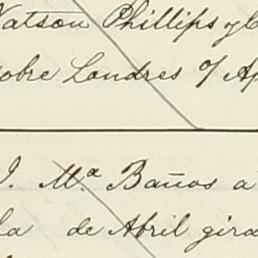 Watson Phillips y C
sobre Londres o/ Ap
J. Mª Baños a
la de Abril gira